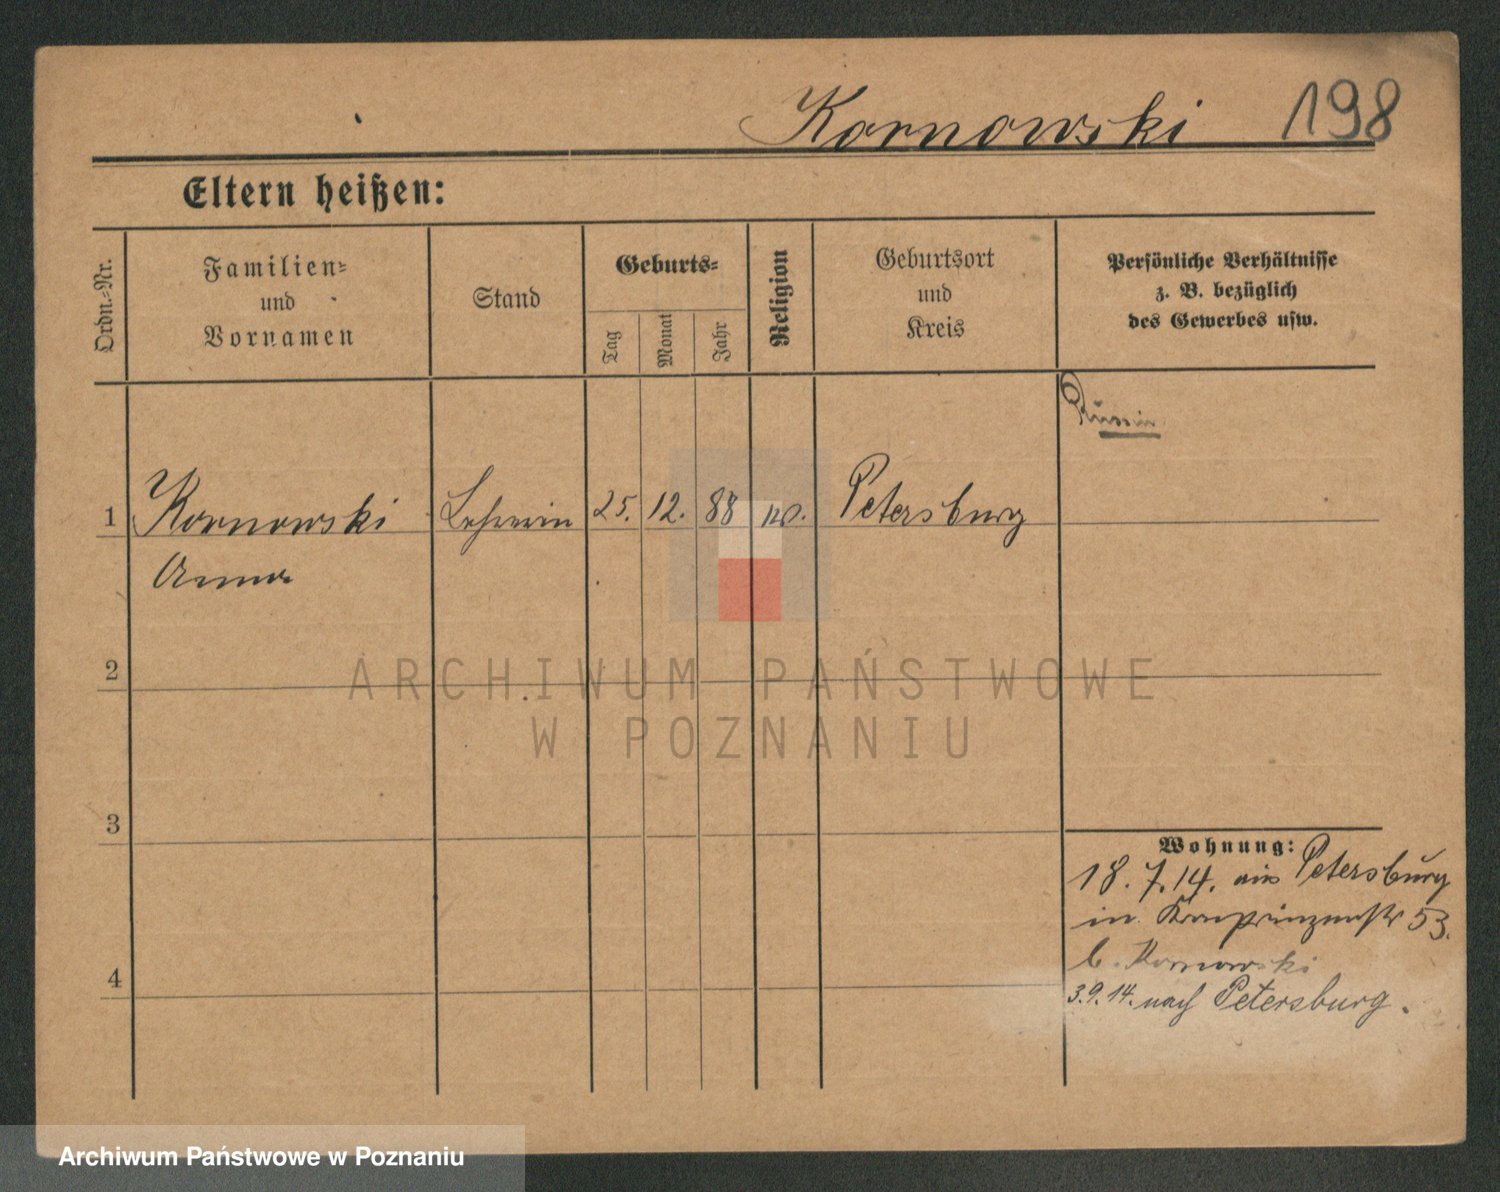 Kornowski 198
Eltern heißen:
Ordn.-Nr.
Familien-
und
Vornamen
Stand
Geburts-
Tag
Monat
Jahr
Religion
Geburtsort
und
Kreis
Persönliche Verhältnisse
z. B. bezüglich
des Gewerbes usw.
Russin
1 Kornowski Lehrerin 25. 12. 88 Petersburg
Anna
2
3
4
Wohnung:
18. 7. 14. aus Petersburg
in Kronprinzenstr 53.
b. Kornowski
3.9.14. nach Petersburg.
ARCHIWUM PAŃSTWOWE
W POZNANIU
Archiwum Państwowe w Poznaniu